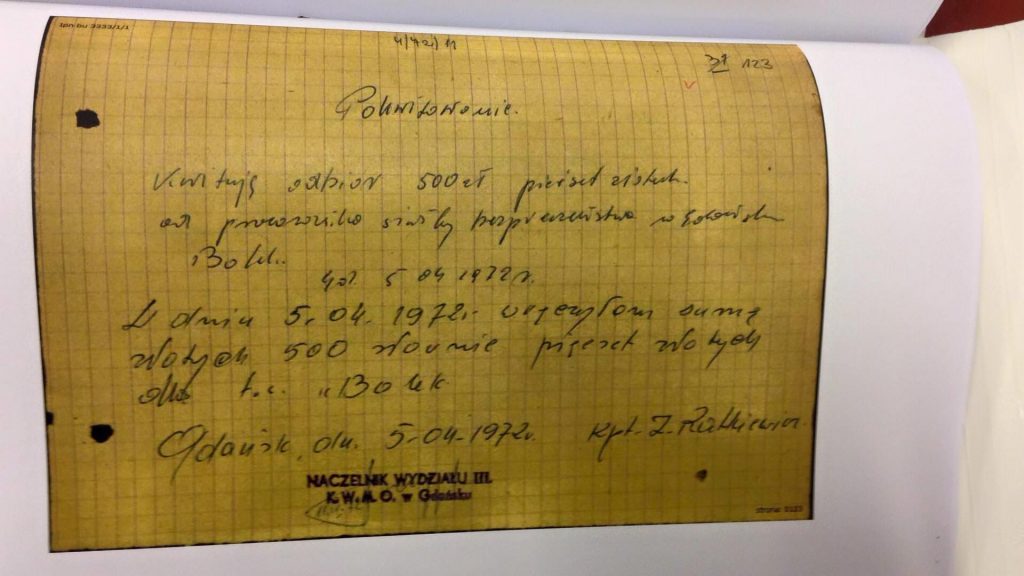 ipn bu 3333/1/1
4/72/11
31 123
Pokwitowanie.
Kwituję odbiór 500 zł pięćset złotych.
od pracownika służby bezpieczeństwa w Gdańsku
Bolek.
Gd. 5 04 1972 r.
W dniu 5.04.1972r. wręczyłem sumę
złotych 500 słownie pięćset złotych
dla t.w. "Bolek
Gdańsk, dn. 5-04-1972r. kpt. Z. Ratkiewicz
NACZELNIK WYDZIAŁU III.
K.W.M.O. w Gdańsku